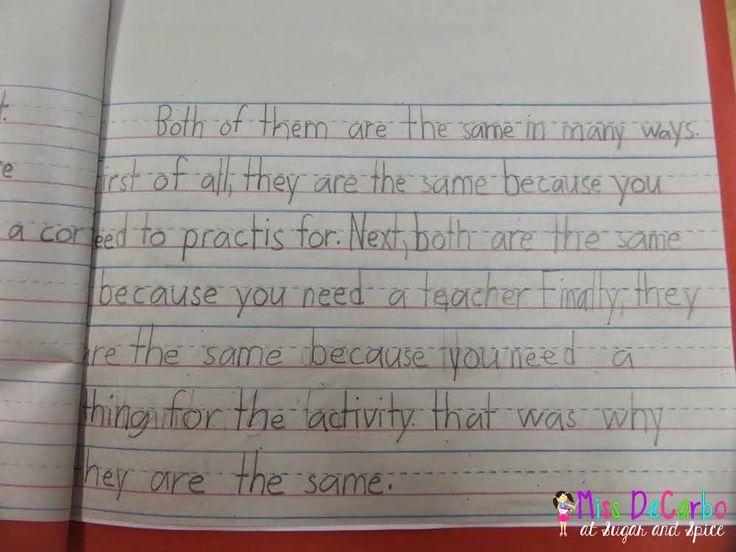 t.
Both of them are the same in many ways.
e
irst of all, they are the same because you
a cor
eed to practis for. Next, both are the same
because you need a teacher Finally, they
re the same because you need a
thing for the activity. that was why
they are the same.
Miss DeCarbo
at Sugar and Spice